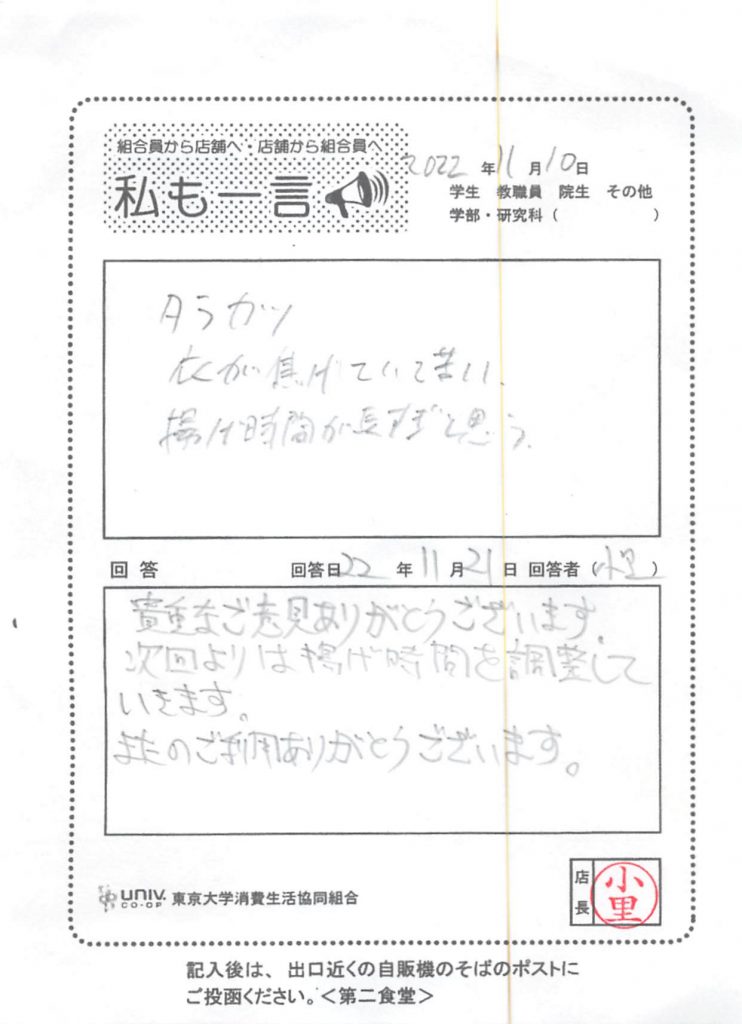 組合員から店舗へ・店舗から組合員へ
私も一言
2022 年 11 月 10 日
学生 教職員 院生 その他
学部・研究科 ( )
タラカツ
衣が焦げていて苦い、
揚げ時間が長すぎと思う、
回答 回答日 22 年 11 月 21 日 回答者 (小里)
貴重なご意見ありがとうございます。
次回よりは揚げ時間を調整して
いきます。
またのご利用ありがとうございます。
UNIV. CO-OP 東京大学消費生活協同組合
店長 小里
記入後は、出口近くの自販機のそばのポストに
ご投函ください。<第二食堂>